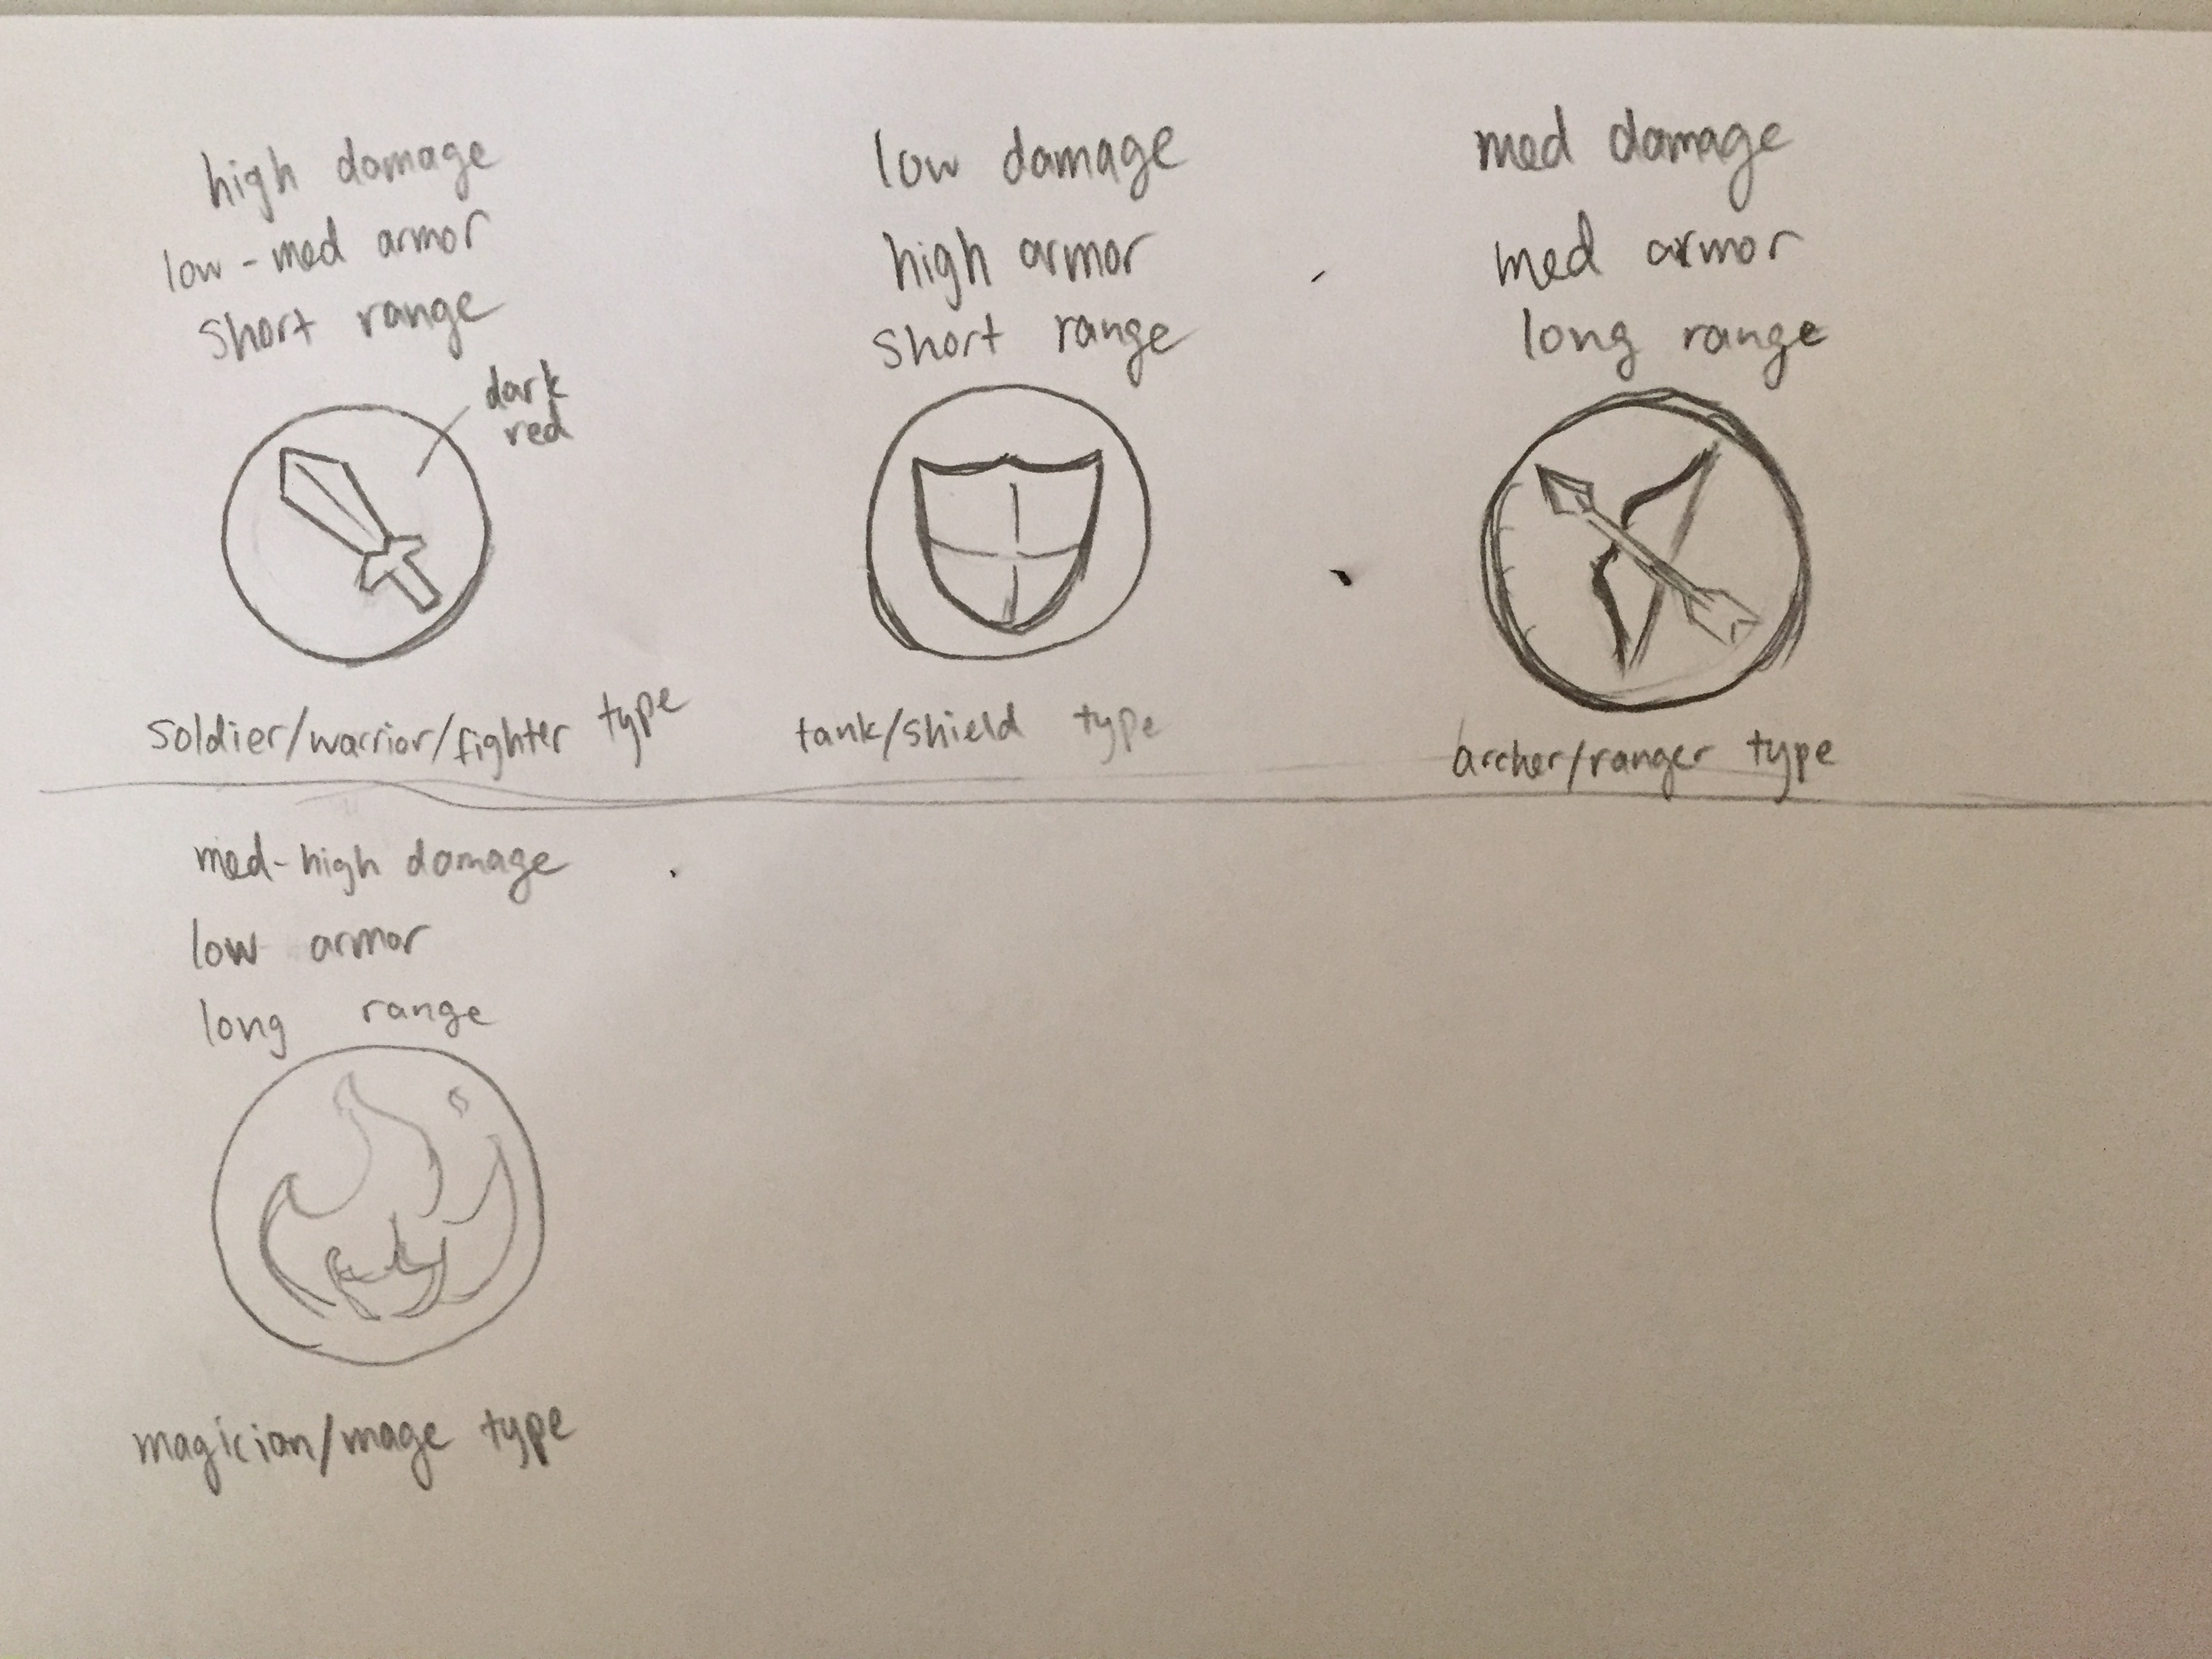 high damage
low-med armor
short range
dark
red
soldier/warrior/fighter type
low damage
high armor
short range
tank/shield type
med damage
med armor
long range
archer/ranger type
med-high damage
low armor
long range
magician/mage type